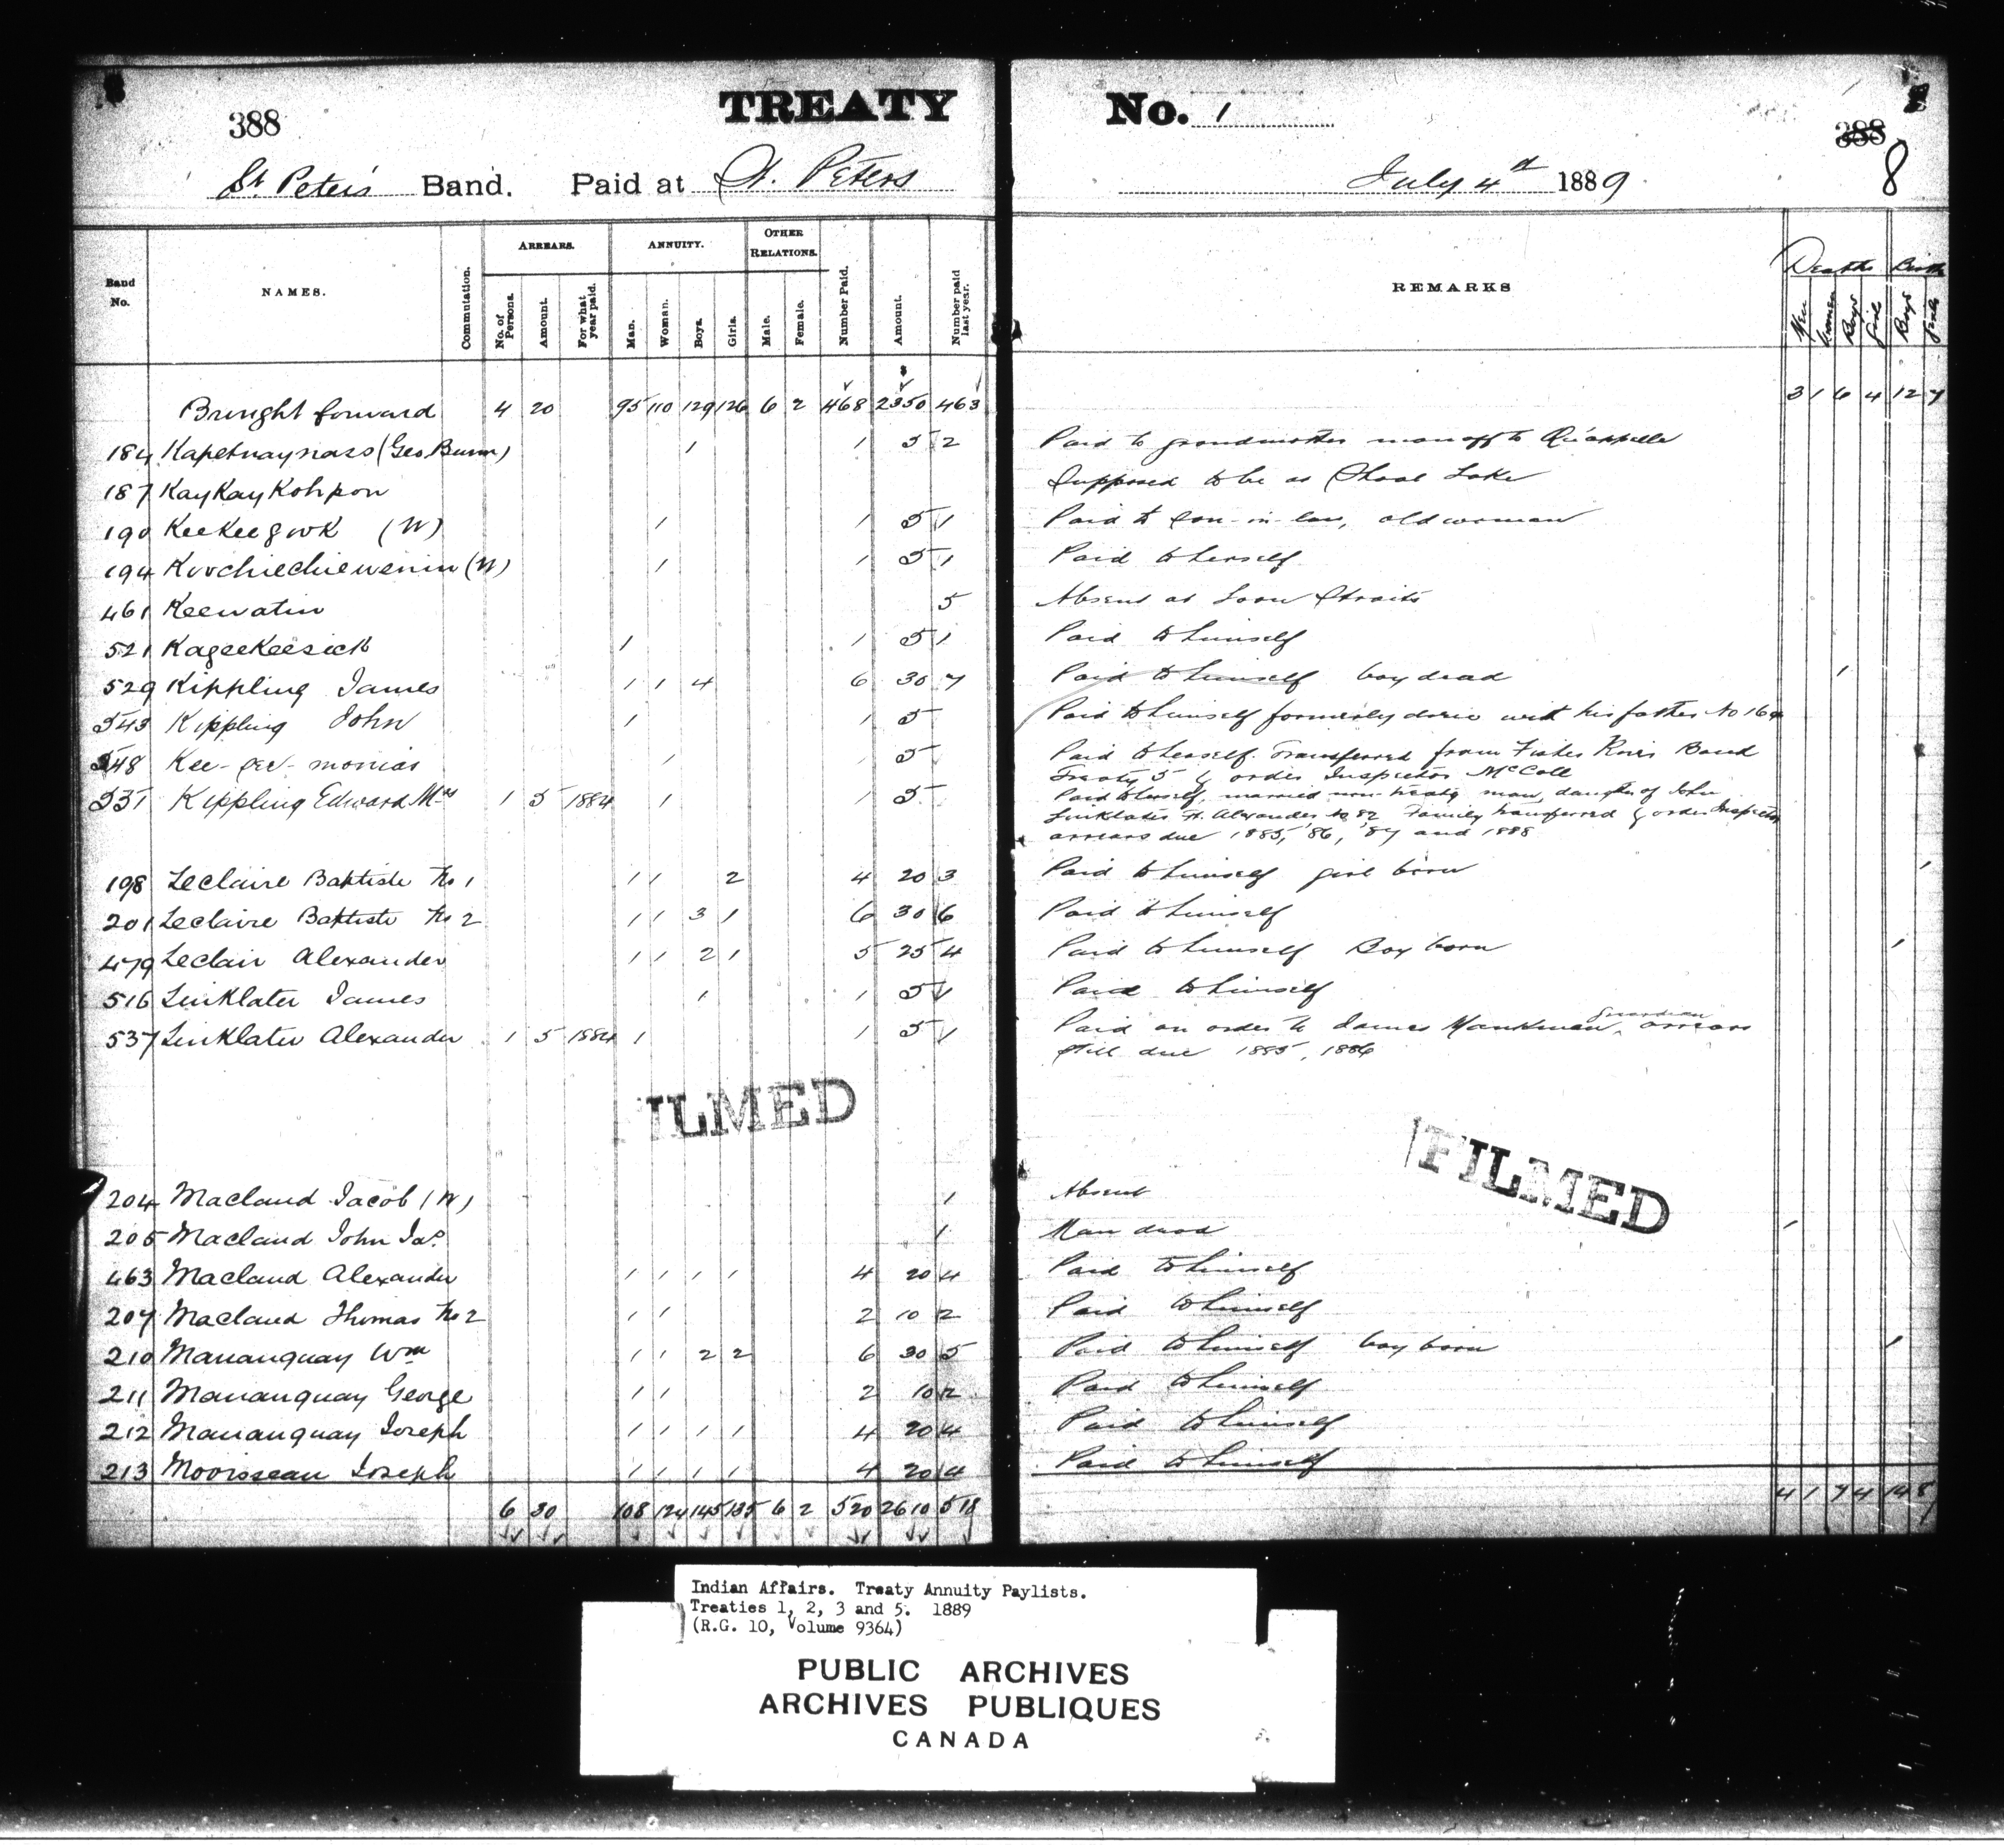 388 TREATY No. 1 388
8
St. Peter's Band. Paid at St. Peters July 4th 1889
Band No. NAMES. Commutation. ARREARS. No. of Persons. Amount. For what year paid. ANNUITY. Man. Woman. Boys. Girls. OTHER RELATIONS. Male. Female. Number Paid. Amount. Number paid last year. REMARKS Deaths Men Women Boys Girls Births Boys Girls
Brought forward 4 20 95 110 129 126 6 2 468 2350 463 3 1 6 4 12 7
184 Kapetnaynass (Geo. Bunn) 1 1 5 2 Paid to grandmother man off to Qu'appelle
187 KayKayKohpon Supposed to be at Shoal Lake
190 KeeKeegook (W) 1 1 5 1 Paid to son-in-law, old woman
194 Koochiechiewenin (W) 1 1 5 1 Paid to herself
461 Keewatin 5 Absent at Loon Straits
521 KageeKeesick 1 1 5 1 Paid to himself
529 Kippling James 1 1 4 6 30 7 Paid to himself boy dead 1
543 Kippling John 1 1 5 Paid to himself formerly drew with his father No 169
548 Kee-pee-monias 1 1 5 Paid to herself. Transferred from Fisher River Band
Treaty 5 by order Inspector McColl
551 Kippling Edward Mrs 1 5 1884 1 1 5 Paid to herself, married non-treaty man, daughter of John
Linklater St. Alexander No 82 Family transferred by order Inspector
arrears due 1885, '86, '87 and 1888
198 Leclaire Baptiste No 1 1 1 2 4 20 3 Paid to himself girl born 1
201 Leclaire Baptiste No 2 1 1 3 1 6 30 6 Paid to himself
479 Leclair Alexander 1 1 2 1 5 25 4 Paid to himself Boy born 1
516 Linklater James 1 1 5 1 Paid to himself
537 Linklater Alexander 1 5 1884 1 1 5 1 Paid on order to James guardian arrears
still due 1885, 1886
FILMED
FILMED
204 Macland Jacob (W) 1 Absent
205 Macland John Jas. 1 Man dead 1
463 Macland Alexander 1 1 1 1 4 20 4 Paid to himself
207 Macland Thomas No 2 1 1 2 10 2 Paid to himself
210 Mananquay Wm 1 1 2 2 6 30 5 Paid to himself boy born 1
211 Mananquay George 1 1 2 10 2 Paid to himself
212 Mananquay Joseph 1 1 1 1 4 20 4 Paid to himself
213 Moorisseau Joseph 1 1 1 1 4 20 4 Paid to himself
6 30 108 124 145 135 6 2 520 2610 518 4 1 7 4 14 8
Indian Affairs. Treaty Annuity Paylists.
Treaties 1, 2, 3 and 5. 1889
(R.G. 10, Volume 9364)
PUBLIC ARCHIVES
ARCHIVES PUBLIQUES
CANADA